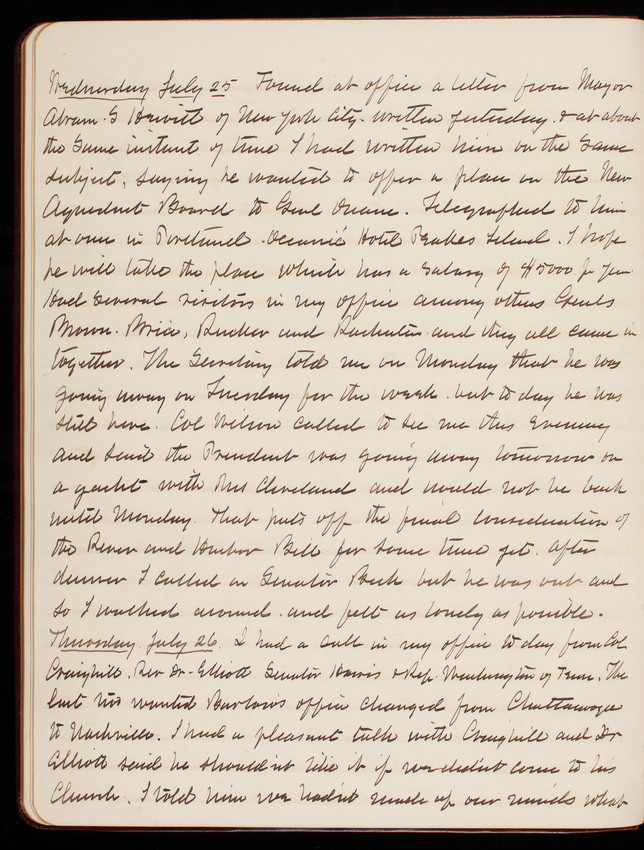 Wednesday July 25 Found at office a letter from Mayor
Abram. S Hewitt of New York City. written yesterday. & at about
the same instant of time I had written him on the same
subject, saying he wanted to offer a place on the New
Aqueduct Board to Genl Duane. Telegraphed to him
at once in Portland. Oceanic Hotel Peakes Island. I hope
he will take the place which has a salary of $5000 pr year.
Had several visitors in my office among others Genls
Brown. Brice, Rucker and and they all came in
together. The Secretary told me on Monday that he was
going away on Tuesday for the week. but to day he was
still here. Col Wilson called to see me this Evening
and said the President was going away tomorrow on
a yacht with Mrs Cleveland and would not be back
until Monday. That puts off the final consideration of
the River and Harbor Bill for some time yet. After
dinner I called on Senator Beck but he was out and
so I walked around. and felt as lonely as possible.
Thursday. July 26. I had a call in my office to day from Col
Craighill. Rev Dr. Elliott Senator Harris & Rep. Washington of Tenn. The
last two wanted Barlow's office changed from Chattanooga
to Nashville. I had a pleasant talk with Craighill and Dr
Elliott said he shouldn't like it if we didn't come to his
Church. I told him we hadn't made up our minds what